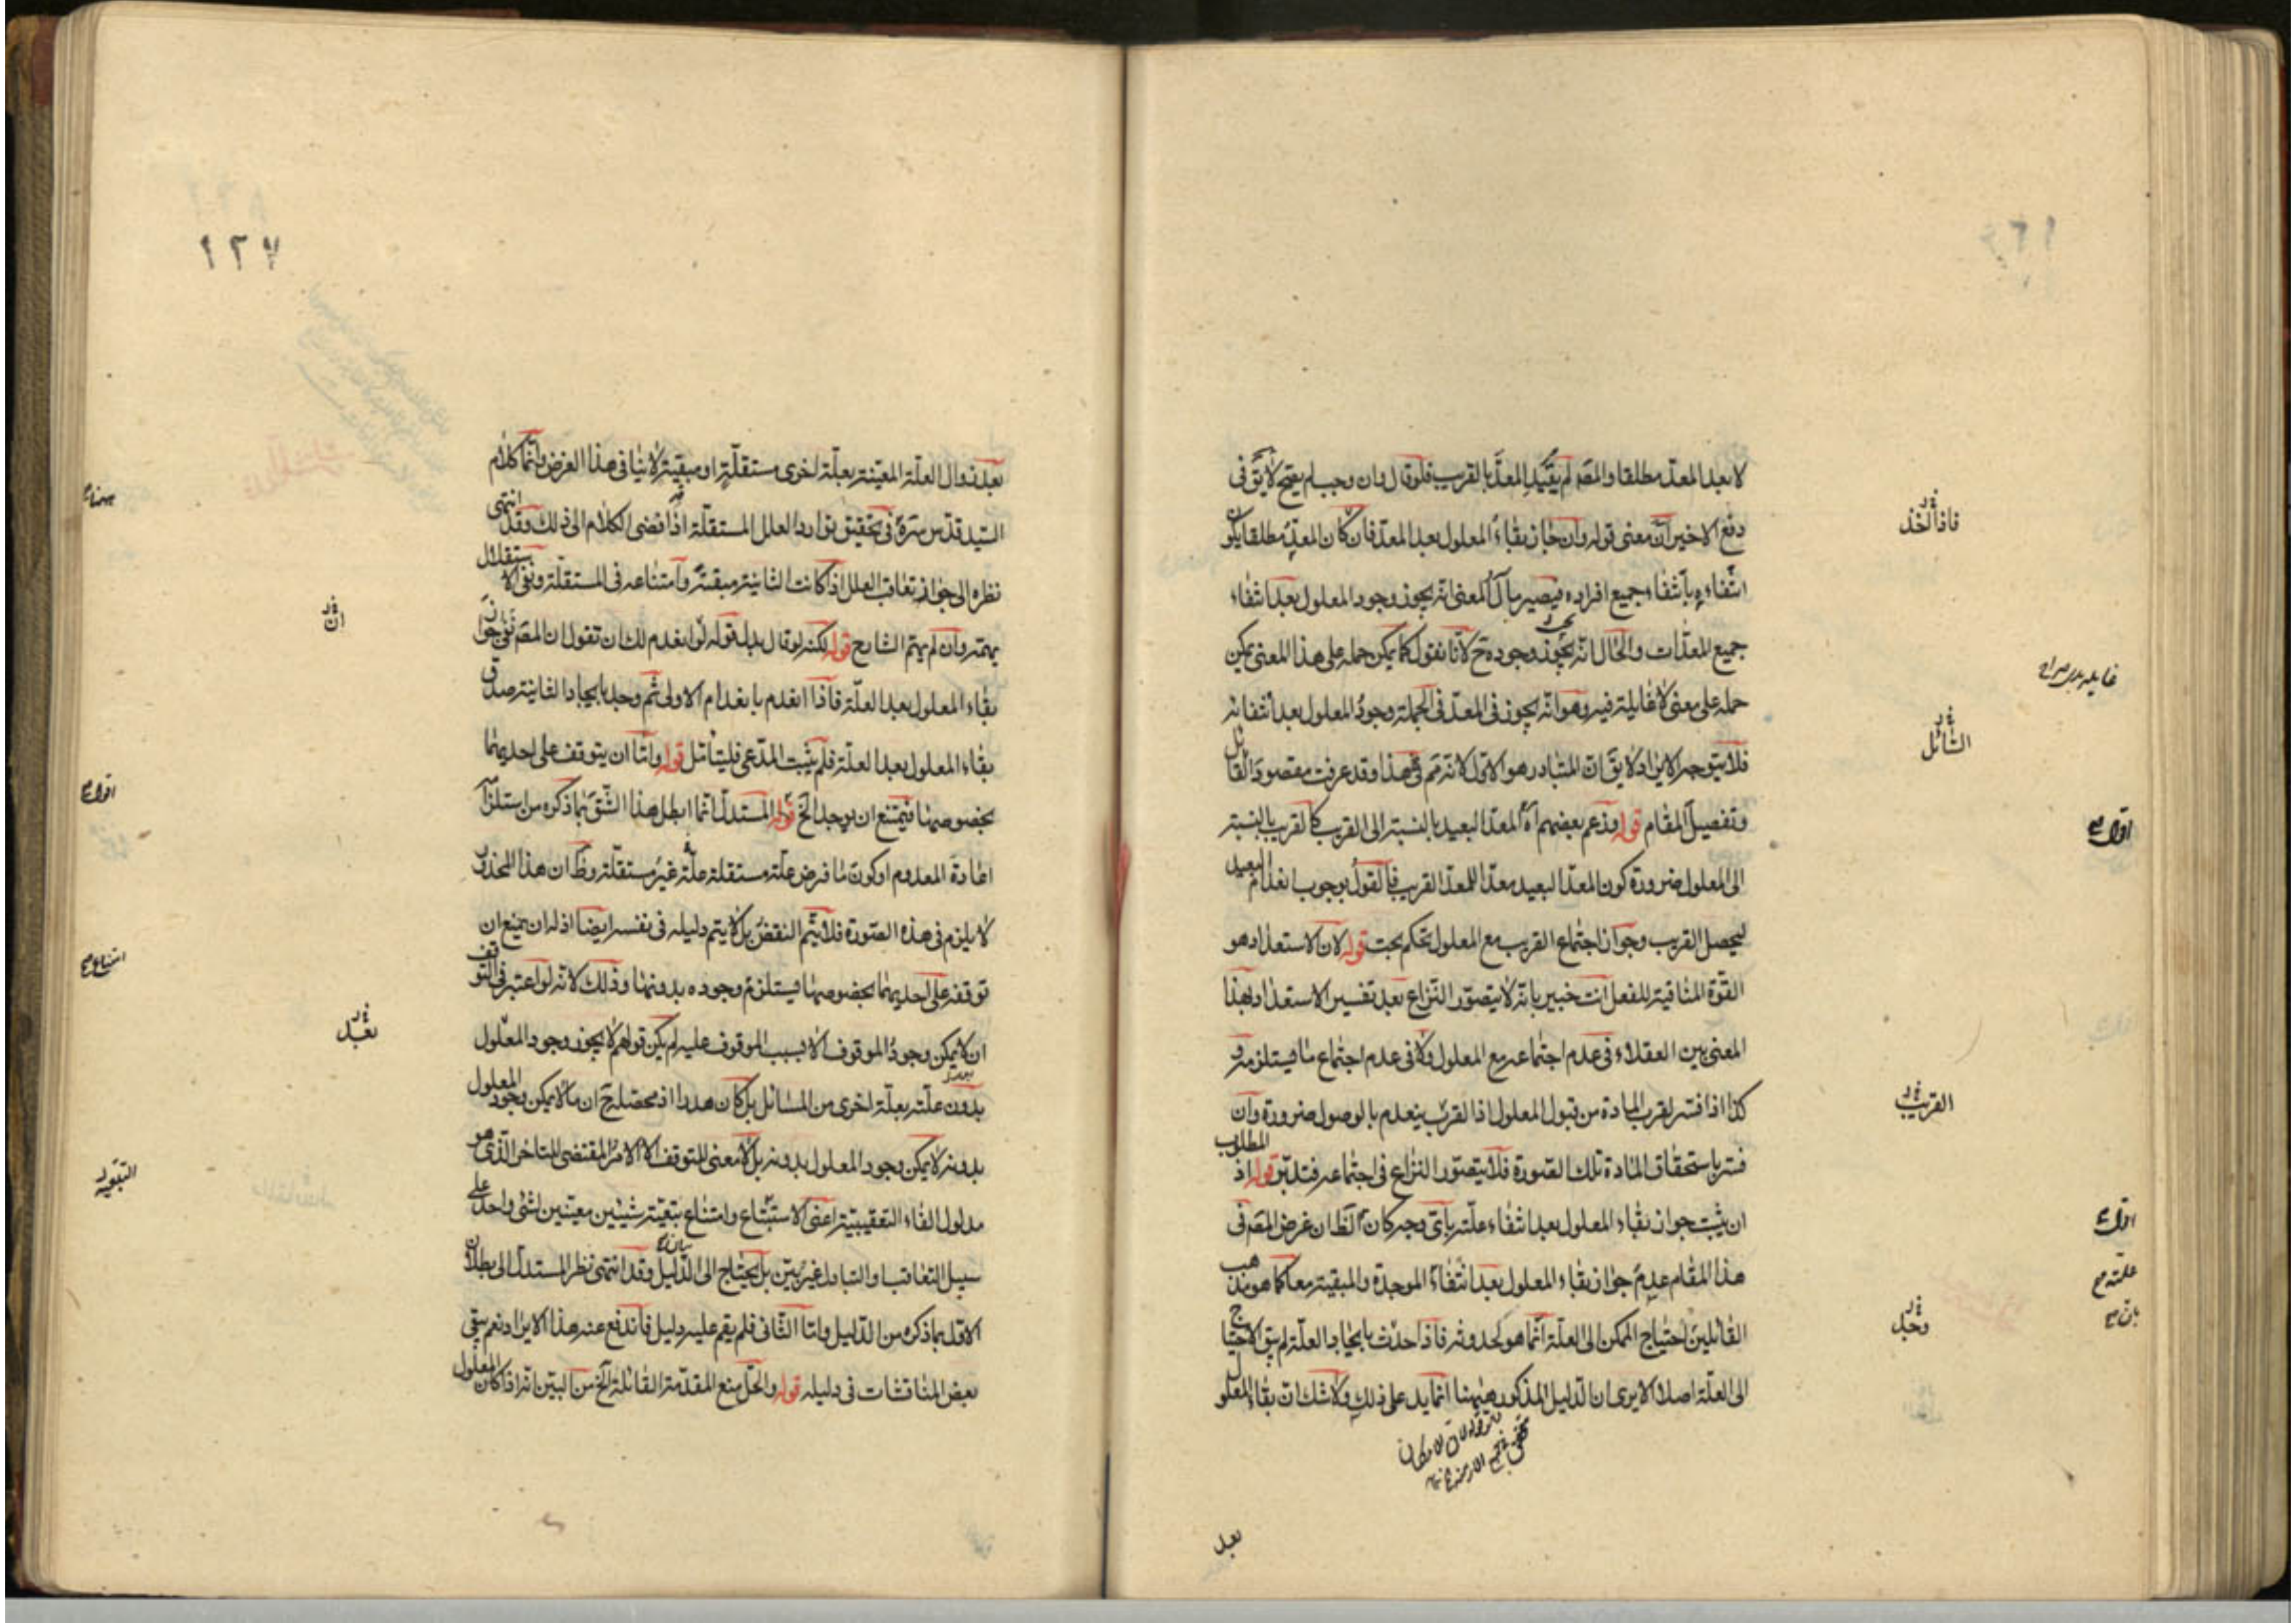 لا بعد المعدّ مطلقا والمصّ لم يقيّد المعدّ بالقريب فلو قال وان وجب لم يصح لا يقّ فى
دفع الاخير انّ معنى قوله وان جاز بقاء المعلول بعد المعدّ فان كان المعدّ مطلقا يكون
انتفاءه بانتفاء جميع افراده فيصير مآل المعنى انه يجوز وجود المعلول بعد انتفاء
جميع المعدّات والحال انّه يجوز وجوده ح لانّا نقول كما يمكن حمله على هذا المعنى يمكن
حمله على معنى لا غايلة فيه وهو انّه يجوز فى المعدّ فى الجملة وجود المعلول بعد انتفائه
فلا يتوجه الايراد لا يقّ انّ المتبادر هو الاوّل لانه تمّ هذا وقد عرفت مقصود القائل
وتفصيل المقام قوله وزعم بعضهم اه المعدّ البعيد بالنسبة الى القريب كالقريب بالنسبة
الى المعلول ضرورة كون المعدّ البعيد معدّا للمعدّ القريب فالقول بوجوب انعدام البعيد
ليحصل القريب وجواز اجتماع القريب مع المعلول تحكم بحت قوله لان الاستعداد هو
القوّة المنافية للفعل انت خبير بانّه لا يتصوّر النزاع بعد تفسير الاستعداد بهذا
المعنى بين العقلاء فى عدم اجتماعه مع المعلول ولا فى عدم اجتماع ما يستلزمه و
كذا اذا فسّر لقرب المادة من قبول المعلول اذا القرب ينعدم بالوصول ضرورة وان
فسّر باستحقاق المادة تلك الصّورة فلا يتصوّر النزاع فى اجتماعه فتدبّر قوله اذ المطلوب
ان يثبت جواز بقاء المعلول بعد انتفاء علّته باىّ وجه كان آ الظّ ان غرض المصّ فى
هذا المقام عدم جواز بقاء المعلول بعد انتفاء الموجدة والمبقية معا كما هو مذهب
القائلين احتياج الممكن الى العلّة انّما هو لحدوثه فاذا حدث بايجاد العلّة لم يبق الاحتياج
الى العلّة اصلا الا يرى ان الدّليل المذكور هيهنا انّما يدل على ذلك ولا شك انّ بقاء المعلول
بعد
فاذا الخذ
السّائل
اقول
القريب
اقول
علّته
بان
وحبل
١٢٧
بعد زوال العلّة المعيّنة بعلّة اخرى مستقلّة او مبقية لا ينافى هذا الغرض وانّما كلام
السّيد قدّس سرّه فى تحقيق توارد العلل المستقلّة اذا افضى الكلام الى ذلك وقد انتهى
نظره الى جواز تعاقب العلل اذا كانت الثانية مبقية وامتناعه فى المستقلة ونفى الاستقلال
يهمّه وان لم يهمّ الشارح قوله لكنه لو قال بدل قوله لو انعدم لك ان تقول ان المصّ نفى جواز
بقاء المعلول بعد العلّة فاذا انعدم بانعدام الاولى ثم وجد بايجاد الثانية صدق
بقاء المعلول بعد العلّة فلم يثبت المدّعى فليتأمّل قوله وامّا ان يتوقف على احديهما
بخصوصها فيمتنع ان يوجد الخ قوله المستدلّ انّما ابطل هذا الشّقّ بما ذكره من استلزامه
اعادة المعدوم او كون ما فرض علّة مستقلة علّة غير مستقلّة وظّ ان هذا المحذور
لا يلزم فى هذه الصّورة فلا يتمّ النقض بل لا يتم دليله فى نفسه ايضا اذ له ان يمنع ان
توقفه على احديهما بخصوصها يستلزم وجوده بدونها وذلك لانّه لو اعتبر فى التوقف
ان لا يمكن وجود الموقوف الا بسبب الموقوف عليه لم يكن قولهم لا يجوز وجود المعلول
بدون علّته بعلّة اخرى من المسائل بل كان هدرا اذ محصله ح ان ما لا يمكن وجود المعلول
بدونه لا يمكن وجود المعلول بدونه بل لا معنى للتوقف الا الامر المقتضى للتاخر الذى هو
مدلول الفاء التعقيبية اعنى الاستتباع وامتناع تبعيّة شيئين معيّنين لشئ واحد على
سبيل التعاقب والتبادل غير بيّن بل يحتاج الى الدّليل وقد انتهى نظر المستدلّ الى بطلان
الاوّل بما ذكره من الدّليل وامّا الثّانى فلم يقم عليه دليل فاندفع عنه هذا الايراد نعم بقى
بعض المناقشات فى دليله قوله والحلّ منع المقدّمة القائلة الخ من البيّن انّه اذا كان المعلول
هنا
انّ
اقول
امتناع
بعبل